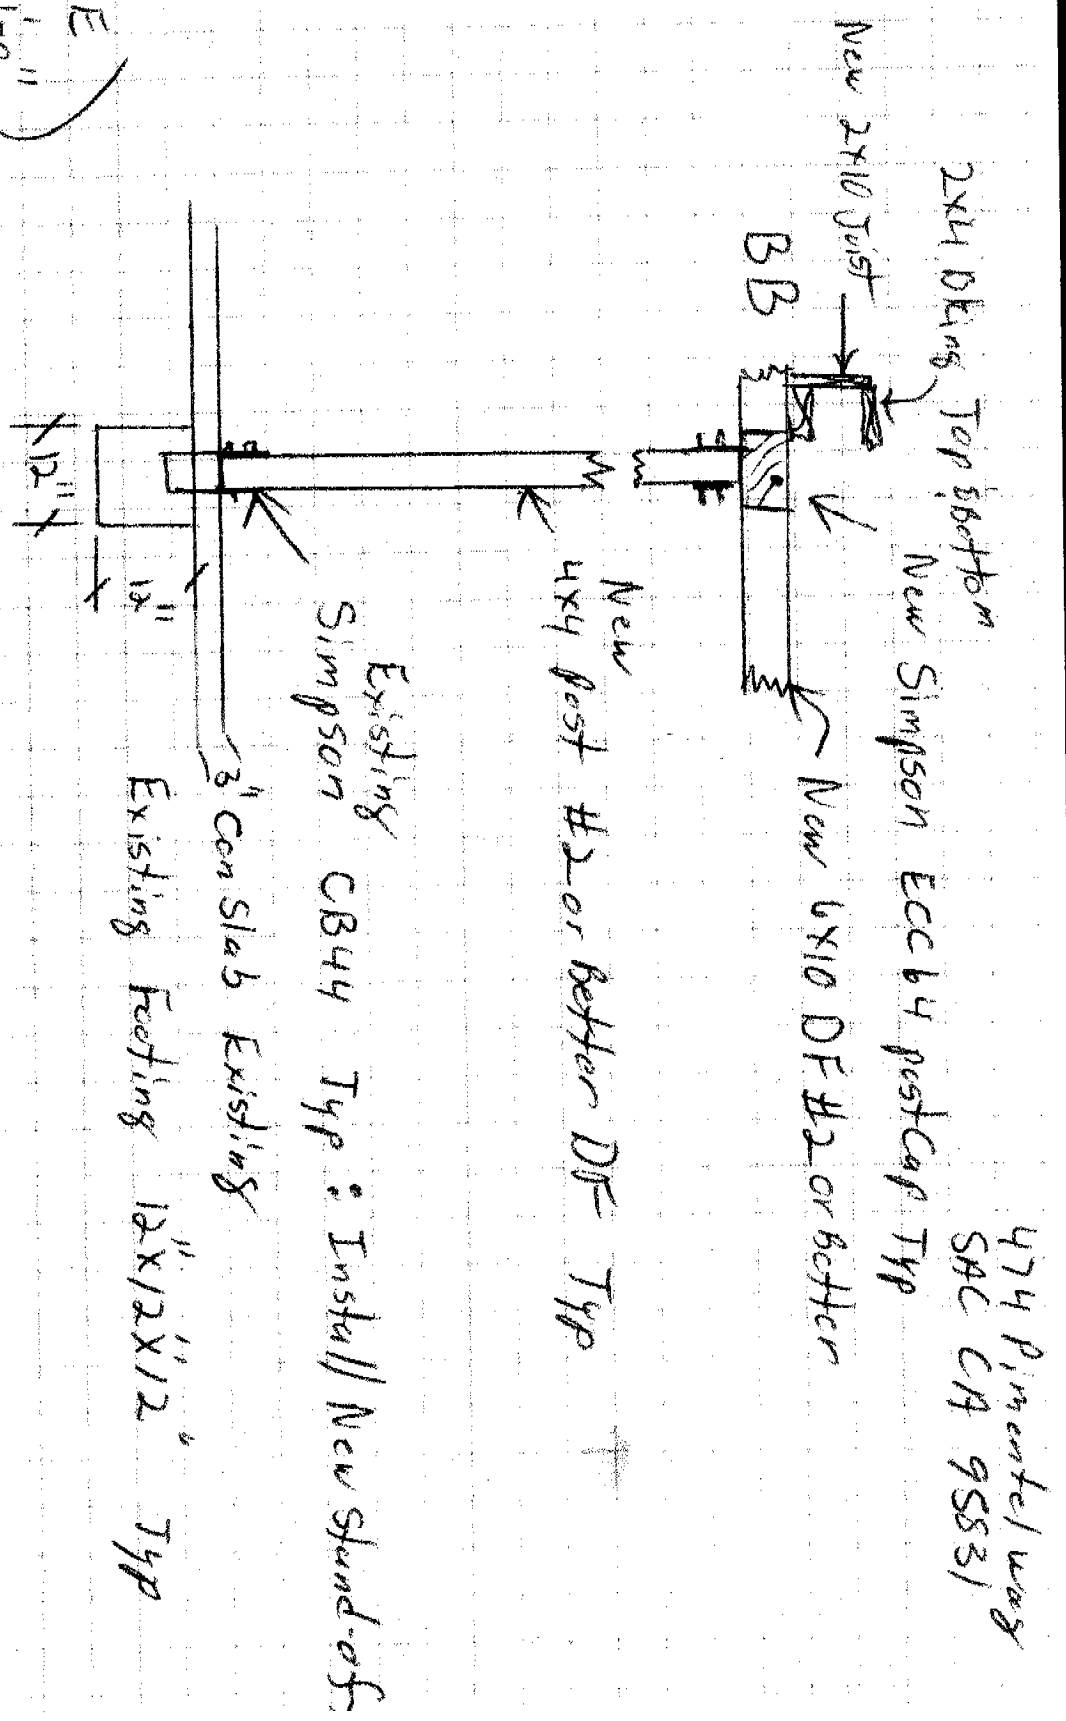 474 Pimentel way
SAC CA 95831
2x4 Bking Top & Bottom
New Simpson ECC64 post Cap Typ
New 2x10 Joist
New 6x10 DF #2 or Better
BB
New
4x4 Post #2 or Better DF Typ
Existing
Simpson CB44 Typ : Install New stand-of
3" Con Slab Existing
Existing Footing 12"x12"x12" Typ
12"
12"
E